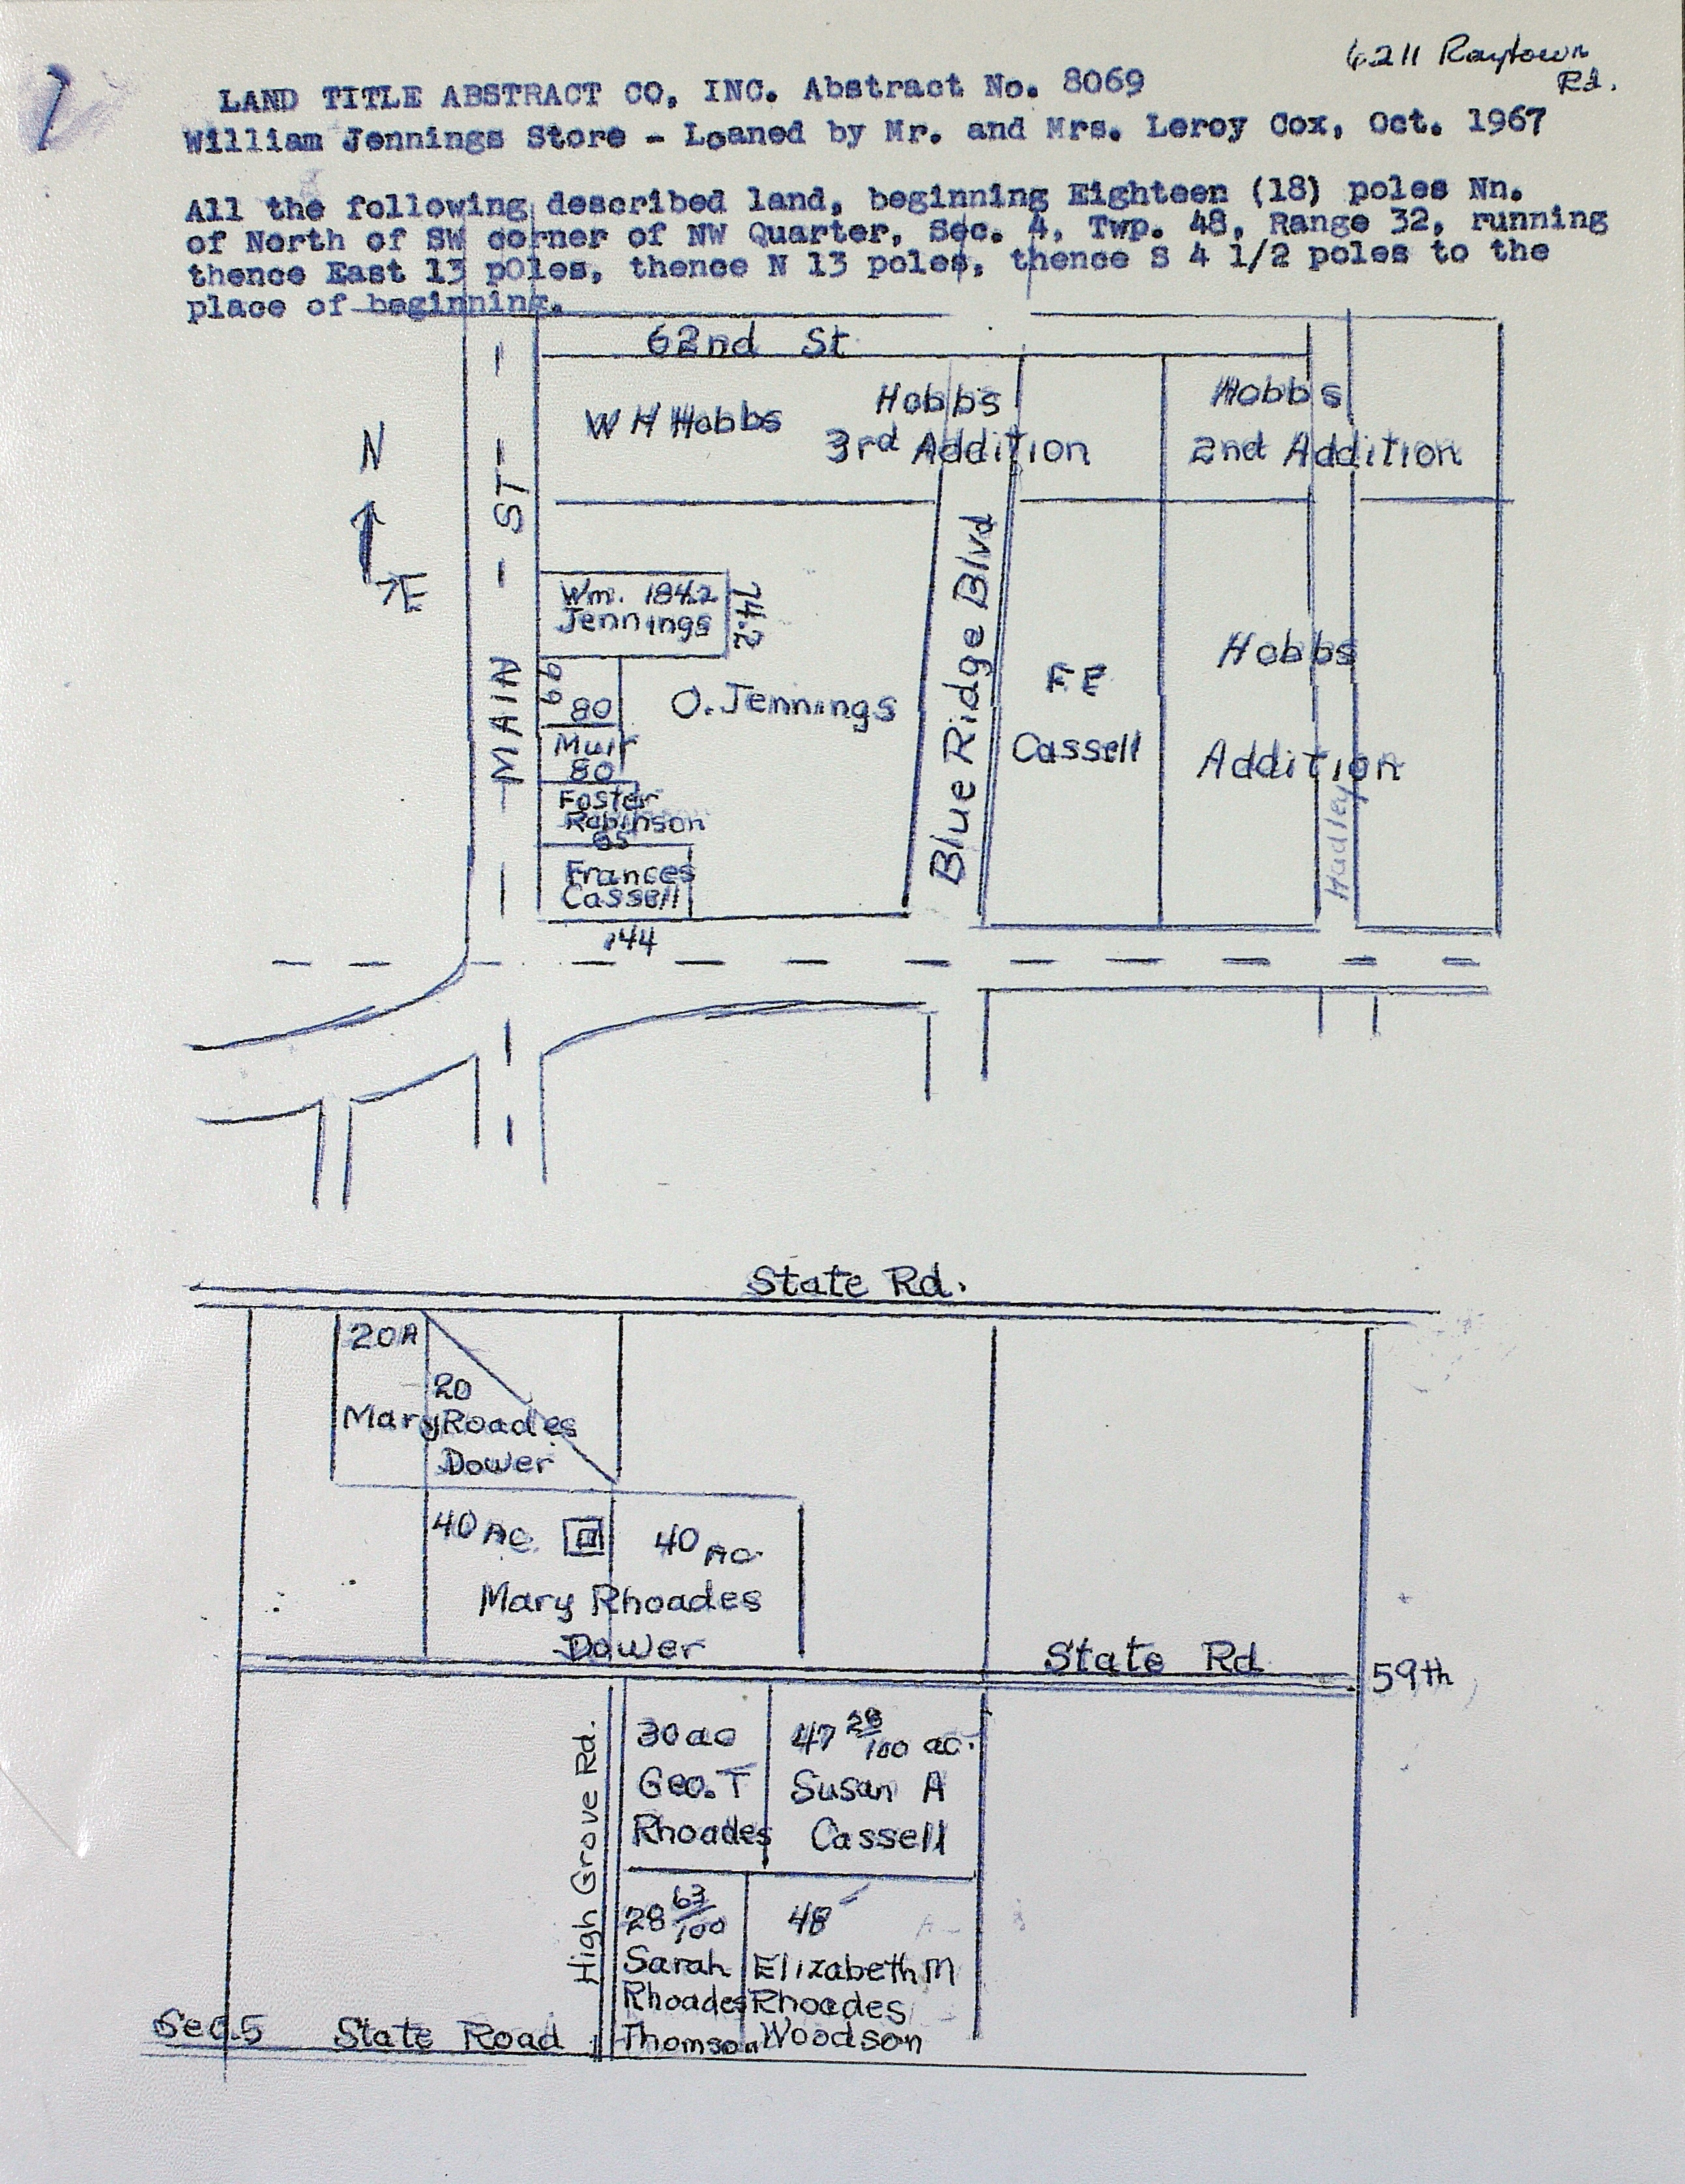 6211 Raytown
Rd.
LAND TITLE ABSTRACT CO, INC. Abstract No. 8069
William Jennings Store - Loaned by Mr. and Mrs. Leroy Cox, Oct. 1967
All the following described land, beginning Eighteen (18) poles Nn.
of North of SW corner of NW Quarter, Sec. 4, Twp. 48, Range 32, running
thence East 13 poles, thence N 13 poles, thence S 4 1/2 poles to the
place of beginning.
62nd St
W H Hobbs
Hobbs
3rd Addition
Hobbs
2nd Addition
N
E
MAIN ST
Wm. 1842
Jennings
74.2
66
80
Muir
80
Foster
Robinson
65
Frances
Cassell
144
O. Jennings
Blue Ridge Blvd
F E
Cassell
Hobbs
Addition
Hadley
State Rd.
20A
20
Mary Roades
Dower
40 Ac.
40 Ac.
Mary Rhoades
Dower
State Rd
59th
High Grove Rd.
30 ac
Geo. T
Rhoades
47 28/100 ac.
Susan A
Cassell
28 63/100
Sarah
Rhoades
Thomson
48
Elizabeth M
Rhoades
Woodson
Sec. 5 State Road